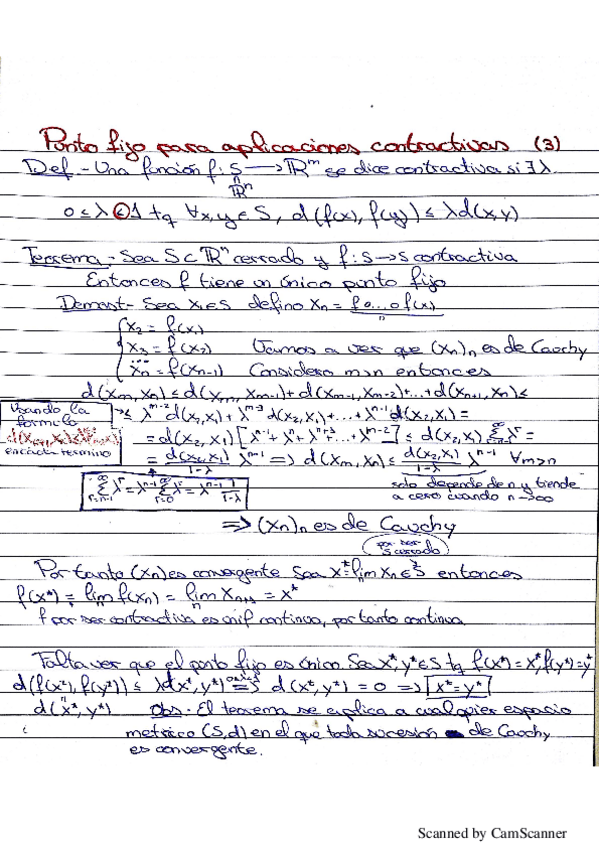 Punto fijo para aplicaciones contractivas (3)
Def.- Una función f: S ⟶ ℝᵐ se dice contractiva si ∃ λ
∩
ℝⁿ
0 ≤ λ < 1 tq ∀x,y ∈ S, d(f(x), f(y)) ≤ λ d(x,y)
Teorema.- Sea S ⊂ ℝⁿ cerrado y f: S → S contractiva
Entonces f tiene un único punto fijo
Demost- Sea x₁ ∈ S defino xₙ = f o...o f(x)
n
x₂ = f(x₁)
x₃ = f(x₂) Vamos a ver que (xₙ)ₙ es de Cauchy
...
xₙ = f(xₙ₋₁) Considero m>n entonces
d(xₘ, xₙ) ≤ d(xₘ, xₘ₋₁) + d(xₘ₋₁, xₘ₋₂) + ... + d(xₙ₊₁, xₙ) ≤
Usando la
formula
en cada termino
≤ λᵐ⁻² d(x₂,x₁) + λᵐ⁻³ d(x₂,x₁) + ... + λⁿ⁻¹ d(x₂,x₁) =
= d(x₂,x₁) [λⁿ⁻¹ + λⁿ + λⁿ⁺¹ + ... + λᵐ⁻²] ≤ d(x₂,x₁) Σ λʳ =
= d(x₂,x₁)/(1-λ) λⁿ⁻¹ ⟹ d(xₘ,xₙ) ≤ d(x₂,x₁)/(1-λ) λⁿ⁻¹ ∀m>n
Σ_{r=n-1}^∞ λʳ = λⁿ⁻¹ Σ_{r=0}^∞ λʳ = λⁿ⁻¹ 1/(1-λ)
solo depende de n y tiende
a cero cuando n → ∞
⟹ (xₙ)ₙ es de Cauchy
por ser
S cerrado
Por tanto (xₙ) es convergente Sea x* = lim xₙ ∈ S entonces
f(x*) = lim f(xₙ) = lim xₙ₊₁ = x*
f por ser contractiva es unif continua, por tanto continua.
Falta ver que el punto fijo es único. Sea x*, y* ∈ S tq f(x*) = x*, f(y*) = y*
d(f(x*), f(y*)) ≤ λ d(x*, y*) ⟹ d(x*, y*) = 0 ⟹ x* = y*
d(x*, y*) Obs.- El teorema se explica a cualquier espacio
metrico (S,d) en el que toda sucesión de Cauchy
es convergente.
Scanned by CamScanner